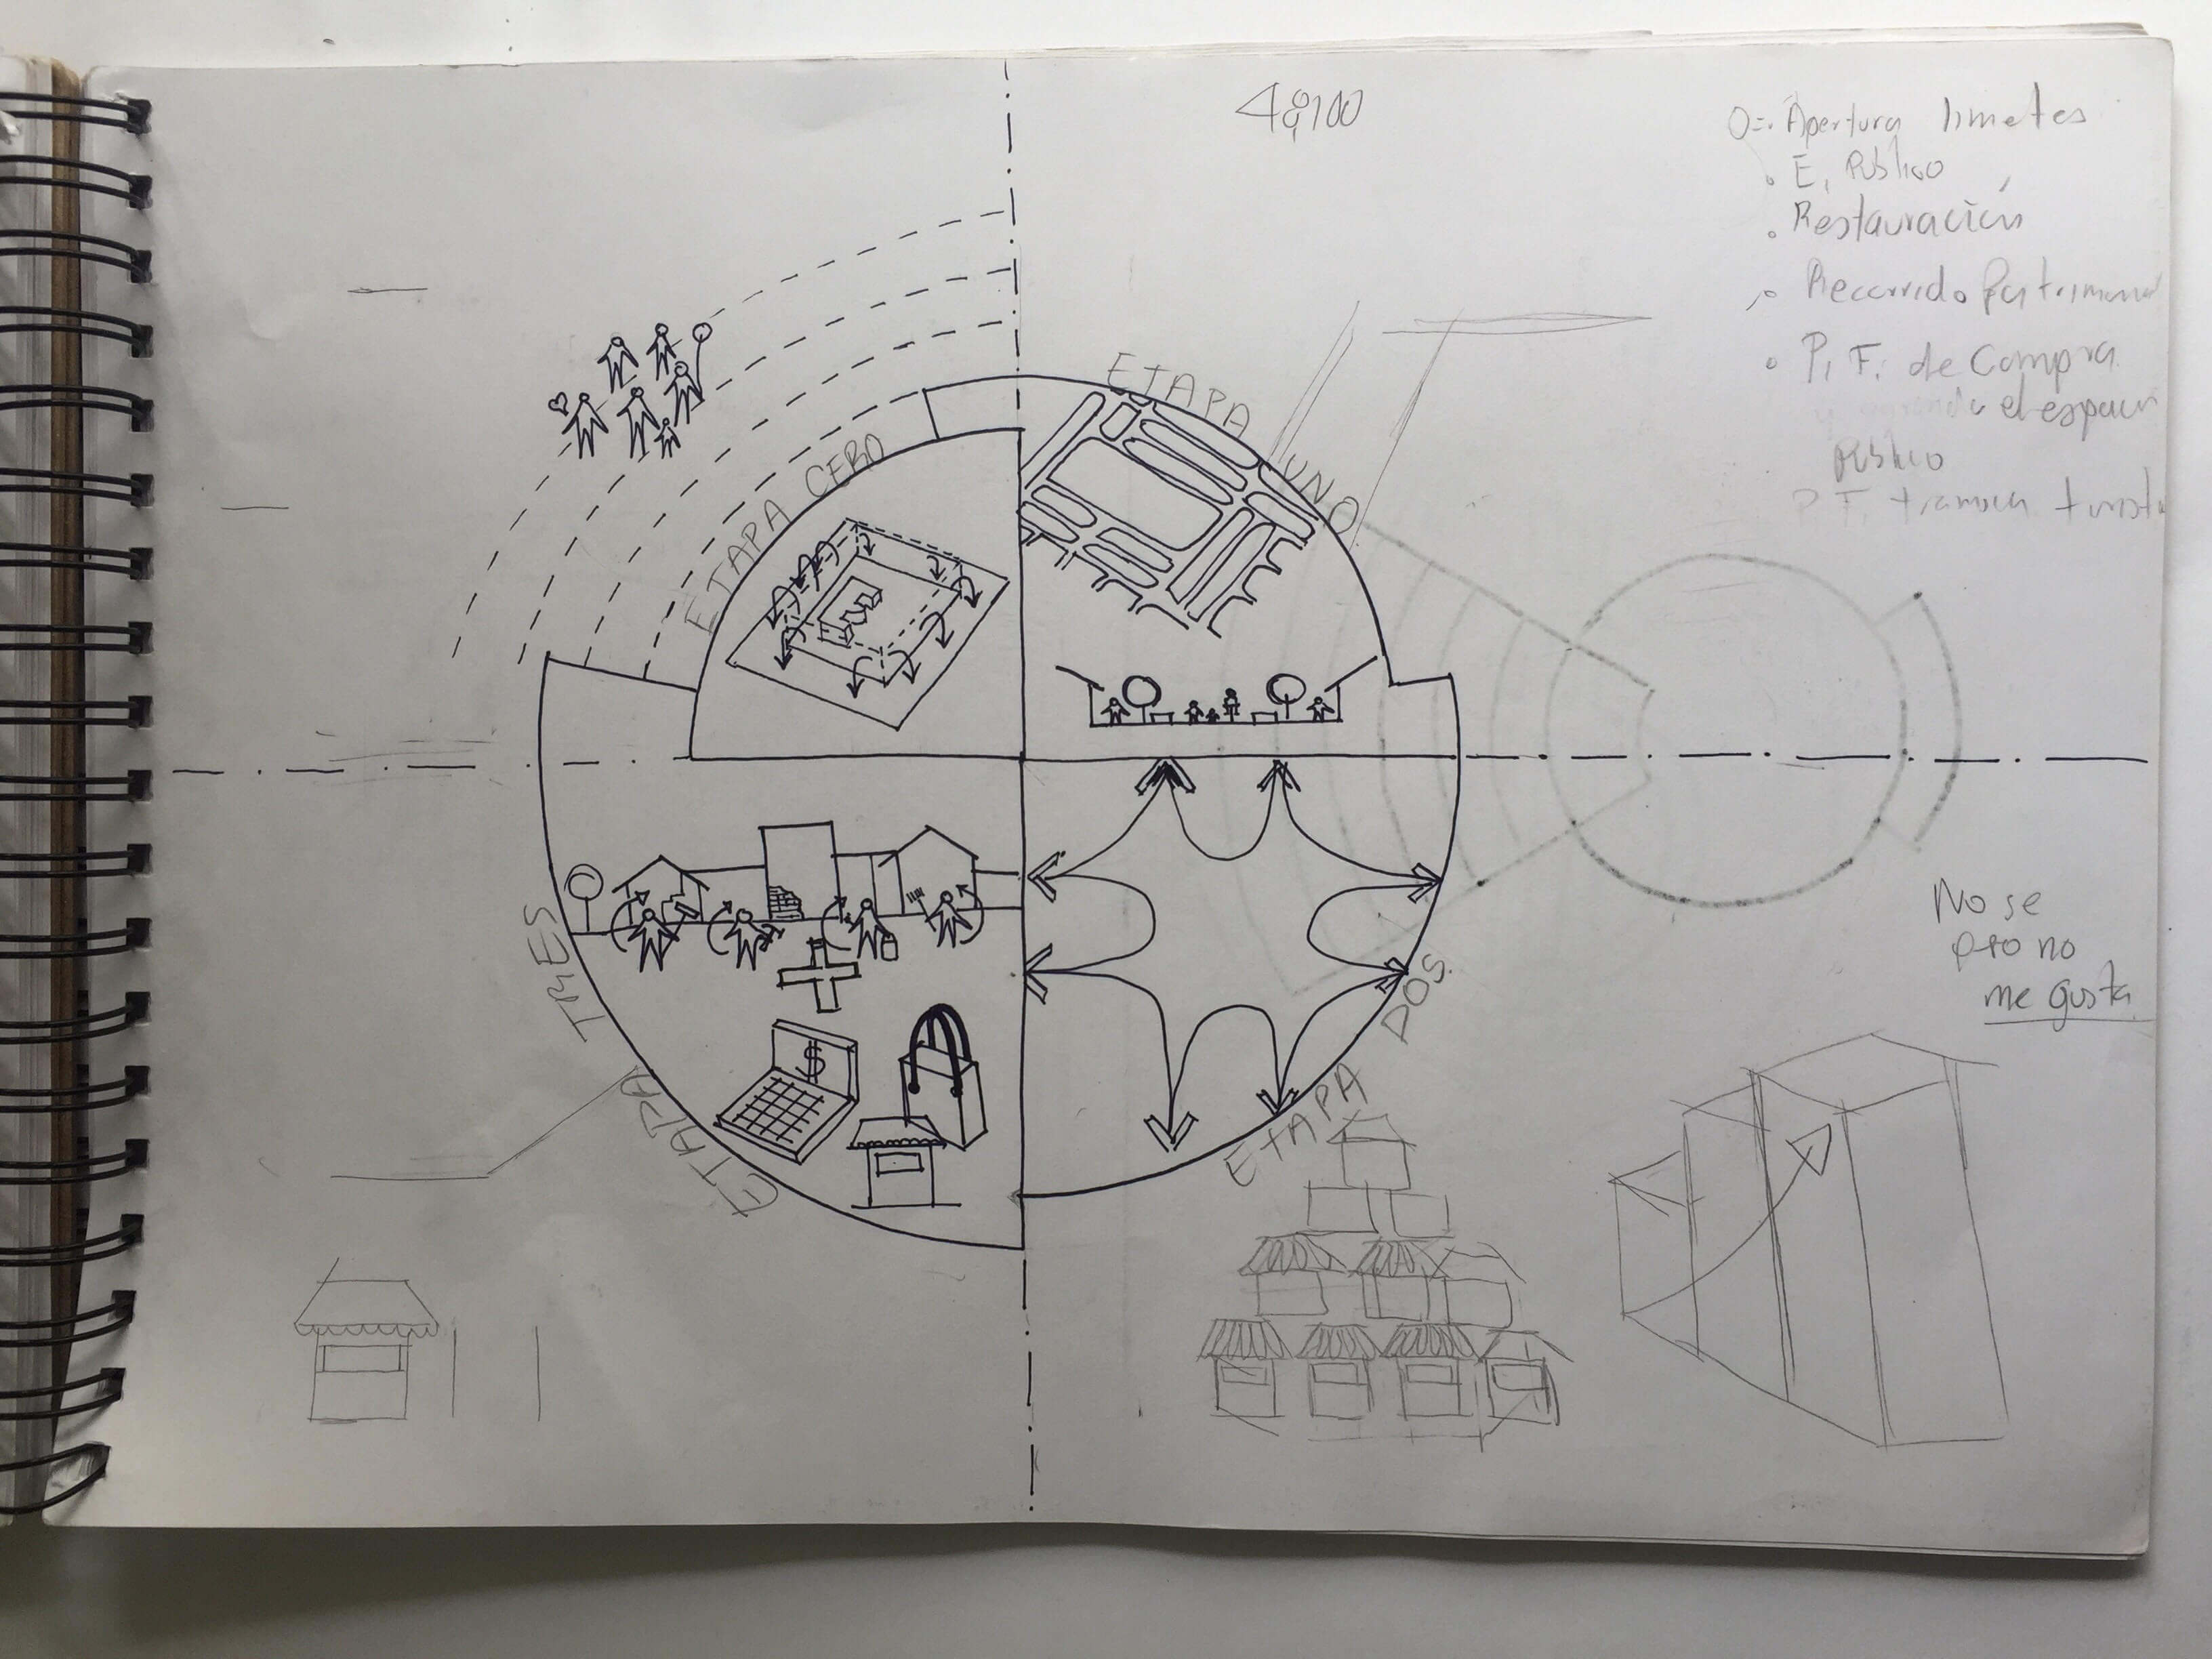 48,100
0=. Apertura limetes
E. Público
Restauración
Recorrido Patrimonial
P. F. de Compra
el espacio
Público
P F.
ETAPA UNO
ETAPA CERO
ETAPA DOS.
ETAPA TRES
$
No se
pero no
me gusta